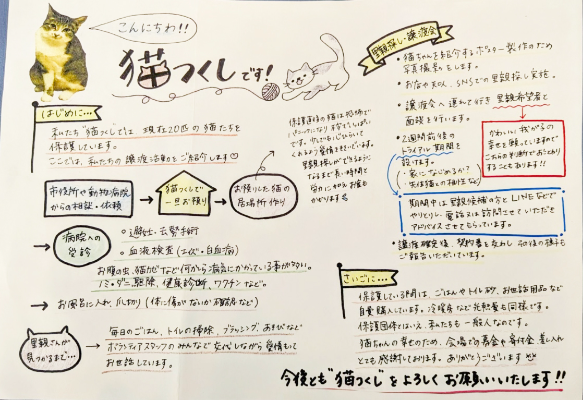 こんにちわ!!
猫つくしです!
はじめに…
私たち"猫つくし"では、現在20匹の猫たちを
保護しています。
ここでは、私たちの譲渡活動をご紹介します♡
市役所や動物病院
からの相談・依頼
猫つくしで
一旦お預り
お預りした猫の
居場所作り
保護直後の猫は恐怖で
病院への
受診
◦避妊・去勢手術
◦血液検査(エイズ・白血病)
お腹の虫、猫カゼなど何から病気にかかっている事が多い。
ノミ・ダニ駆除、健康診断、ワクチンなど。
→お風呂に入れ、爪切り(体に傷がないか確認など)
里親さんが
見つかるまで…
毎日のごはん、トイレの掃除、ブラッシング、あそびなど
ボランティアスタッフのみんなで交代しながら愛情もって
お世話しています。
里親探し・譲渡会
・猫ちゃんを紹介するポスター製作のため
写真撮影をします。
・お店や知人、SNSでの里親探し実施。
・譲渡会へ連れて行き里親希望者と
面談を行います。
・2週間前後の
トライアル期間を
設けます。
・家になじめるか?
・先住猫との相性など
かわいい我が子の
幸せを願っていますので
こちらの判断でおことわり
することもあります!!
期間中は里親候補の方とLINEなどで
やりとりし、電話又は訪問させていただき
アドバイスさせてもらっています。
・譲渡確定後、契約書を交わし、その後の様子も
ご報告いただいています。
さいごに…
保護している間は、ごはんやトイレ砂、お世話用品など
自費購入しています。冷暖房など光熱費も同様です。
保護団体とはいえ、私たちも一般人なのです。
猫ちゃんの幸せのため、会場での募金や寄付金、差し入れ
とても感謝しております。ありがとうございます
今後とも"猫つくし"をよろしくお願いいたします!!